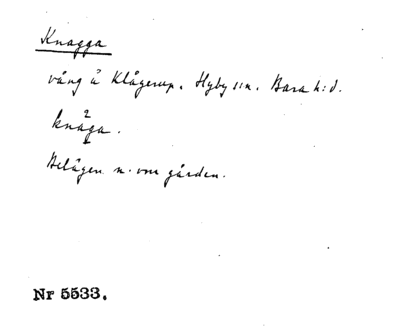 Knagga
vång å Klågerup. Hyby sn. Bara h:d.
knaga.
Belägen n. om gården.
Nr 5533.